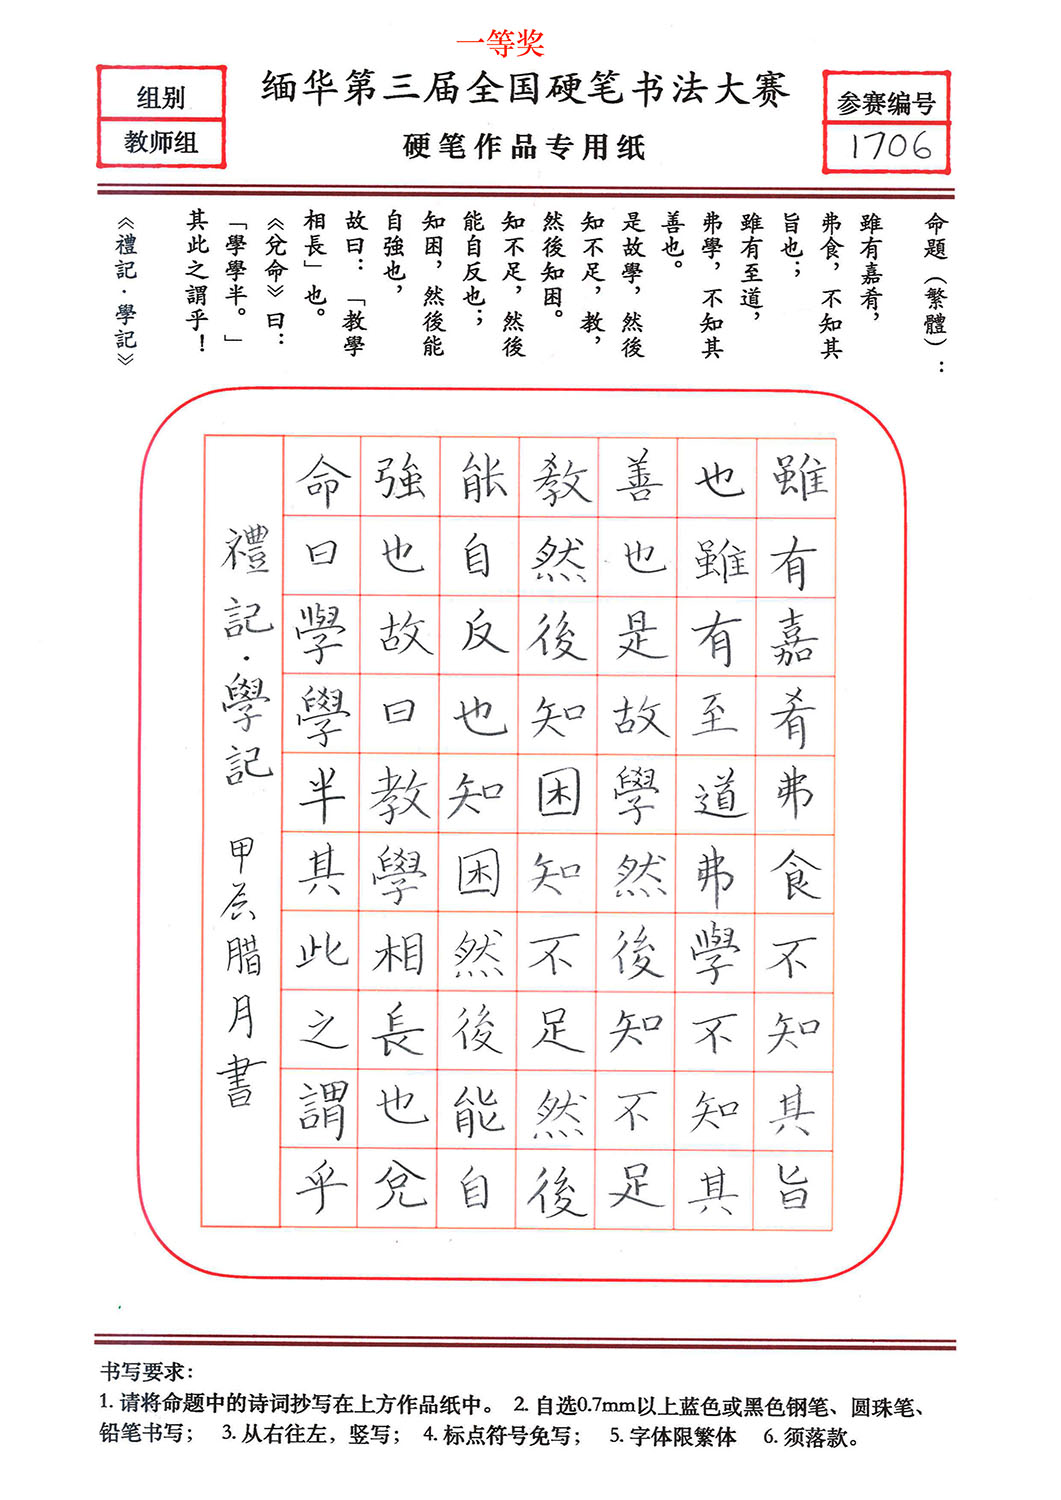 一等奖
缅华第三届全国硬笔书法大赛
硬笔作品专用纸
组别
教师组
参赛编号
1706
命题（繁體）：
雖有嘉肴，
弗食，不知其
旨也；
雖有至道，
弗學，不知其
善也。
是故學，然後
知不足，教，
然後知困。
知不足，然後
能自反也；
知困，然後能
自強也，
故曰：「教學
相長」也。
《兌命》曰：
「學學半。」
其此之謂乎！
《禮記·學記》
雖有嘉肴弗食不知其旨
也雖有至道弗學不知其
善也是故學然後知不足
教然後知困知不足然後
能自反也知困然後能自
強也故曰教學相長也兌
命曰學學半其此之謂乎
禮記·學記 甲辰腊月書
书写要求：
1. 请将命题中的诗词抄写在上方作品纸中。 2. 自选0.7mm以上蓝色或黑色钢笔、圆珠笔、
铅笔书写； 3. 从右往左，竖写； 4. 标点符号免写； 5. 字体限繁体 6. 须落款。